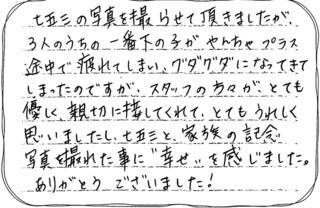 七五三の写真を撮らせて頂きましたが、
3人のうちの一番下の子がやんちゃプラス
途中で疲れてしまい、グダグダになってきて
しまったのですが、スタッフの方々が、とても
優しく、親切に接してくれて、とてもうれしく
思いましたし、七五三と、家族の記念
写真を撮れた事に"幸せ"を感じました。
ありがとうございました!